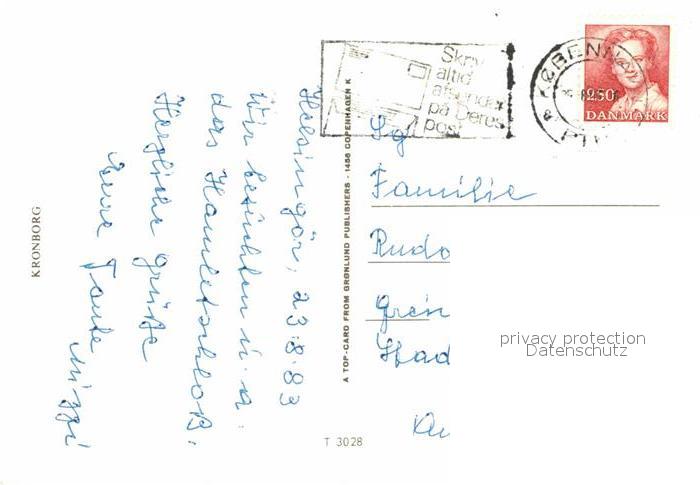 KRONBORG
Helsingör, 23.8.83
Wir besichten u. a.
das Hamletschloß.
Herzliche Grüße
Eure Tante
A TOP-CARD FROM GRØNLUND PUBLISHERS - 1456 COPENHAGEN K
T 3028
Skriv
altid
afsender
på Deres
post
KØBENH
2.50
DANMARK
Familie
Rudo
Stad
privacy protection
Datenschutz